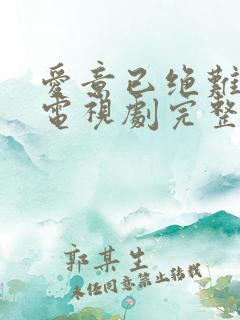 愛意已绝難
電視劇完整
郭某生
未经同意禁止转载